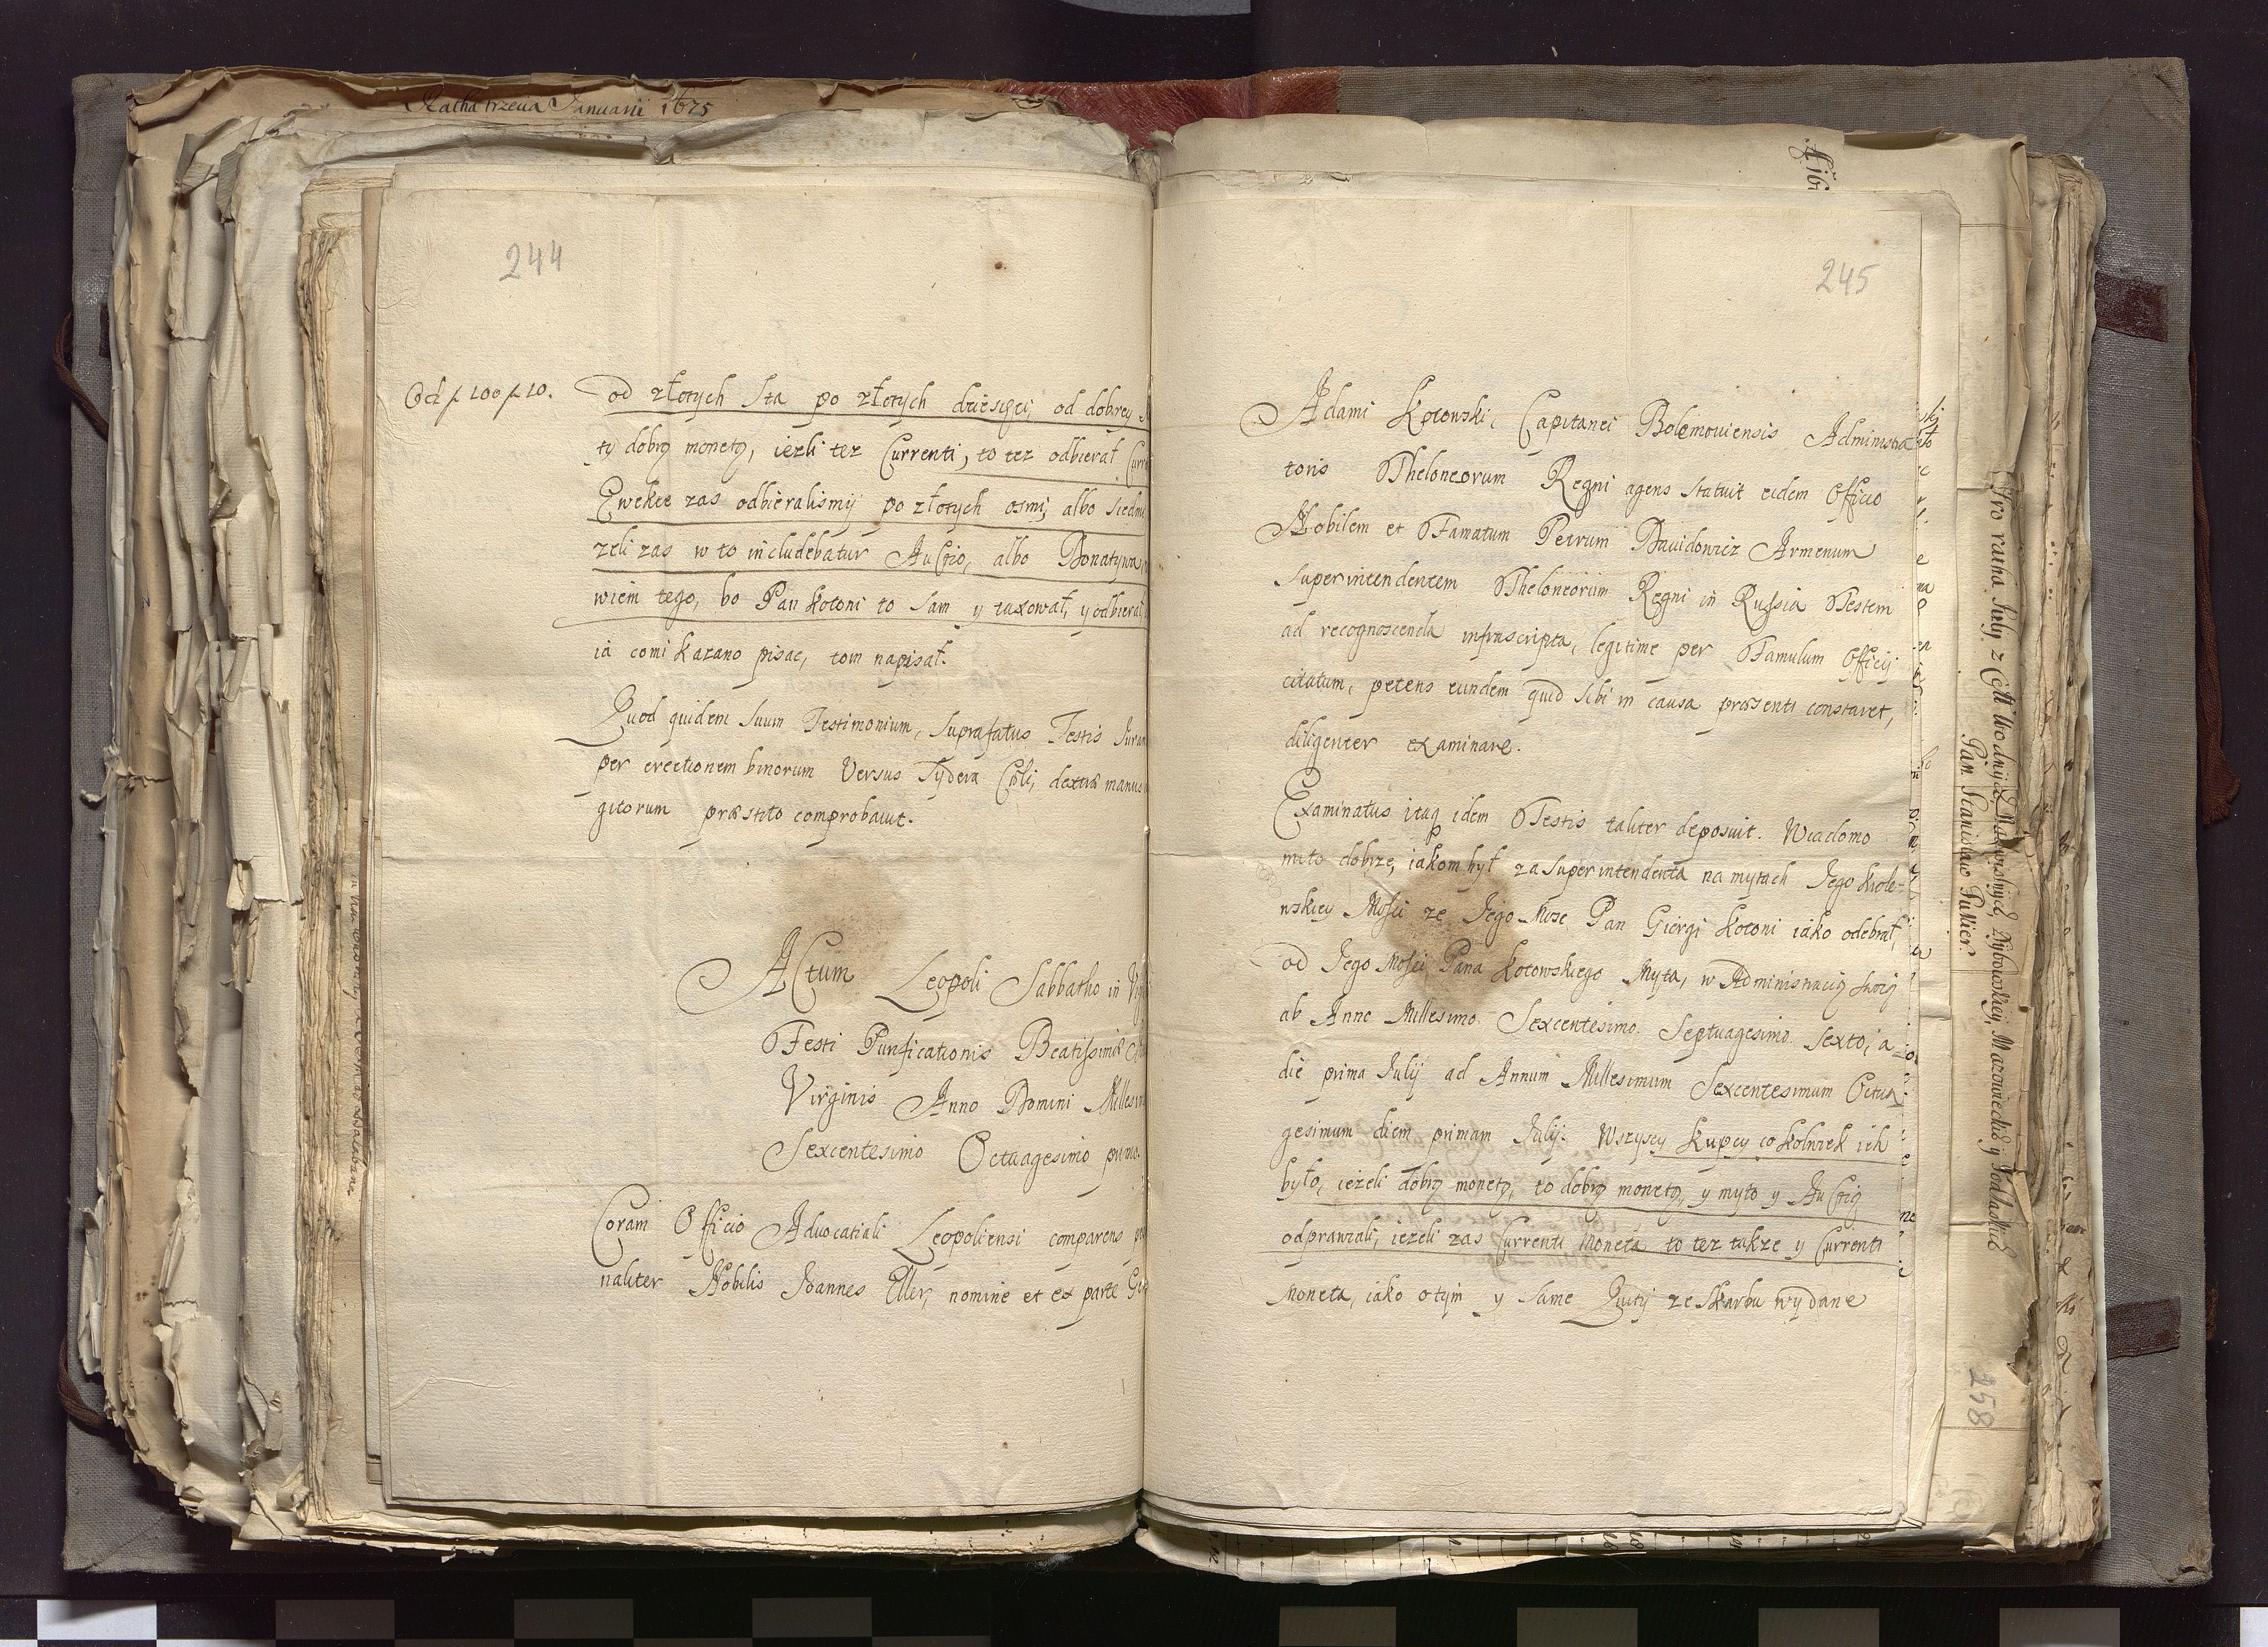 Ratha trzecia Januarii 1675
244
Od f 100 f 10.
od złotych sta po złotych dziesięci, od dobrey
ty dobrą monetą, ieżeli tez Currenti, to tez odbierał
zas odbieralismy po złotych osmi, albo siedmi
zeli zas w to includebatur Auctio, albo Donatywa
wiem tego, bo Pan Kotoni to sam y taxował, y odbierał
ia comi kazano pisac, tom napisał.
Quod quidem suum Testimonium, suprafatus Testis
per erectionem binorum Versus Sydera Cœli, dextræ manus
gitorum præstito comprobavit.
Actum Leopoli Sabbatho in
Festi Purificationis Beatissimæ
Virginis Anno Domini
Sexcentesimo Octuagesimo primo.
Coram Officio Advocatiali Leopoliensi comparens
naliter Nobilis Joannes Eller, nomine et ex parte
245
Adami Kotowski, Capitanei Bolemoviensis Administra
toris Theloneorum Regni agens statuit eidem Officio
Nobilem et Famatum Petrum Davidowicz Armenum
Superintendentem Theloneorum Regni in Russia Testem
ad recognoscenda infrascripta, legitime per Famulum Officij
citatum, petens eundem quid sibi in causa præsenti constaret,
diligenter examinare.
Examinatus itaq idem Testis taliter deposuit. Wiadomo
mi to dobrze, iakom był za Superintendenta na mytach Jego Krole-
wskiey Mości ze Jego Mosc Pan Giergi Kotoni iako odebrał,
od Jego Mości Pana Kotowskiego Myta, w Administracią swoię
ab Anno Millesimo Sexcentesimo Septuagesimo Sexto, a
die prima Julij ad Annum Millesimum Sexcentesimum Octua
gesimum diem primam Julij. Wszyscy kupcy co kolwiek ich
było, ieżeli dobrą monetą, to dobrą monetą, y myto y Auctią
odprawiali, ieżeli zas Currenti Moneta to tez także y Currenti
Moneta, iako o tym y same Quity ze Skarbu wydane
Pan Stanisław
258